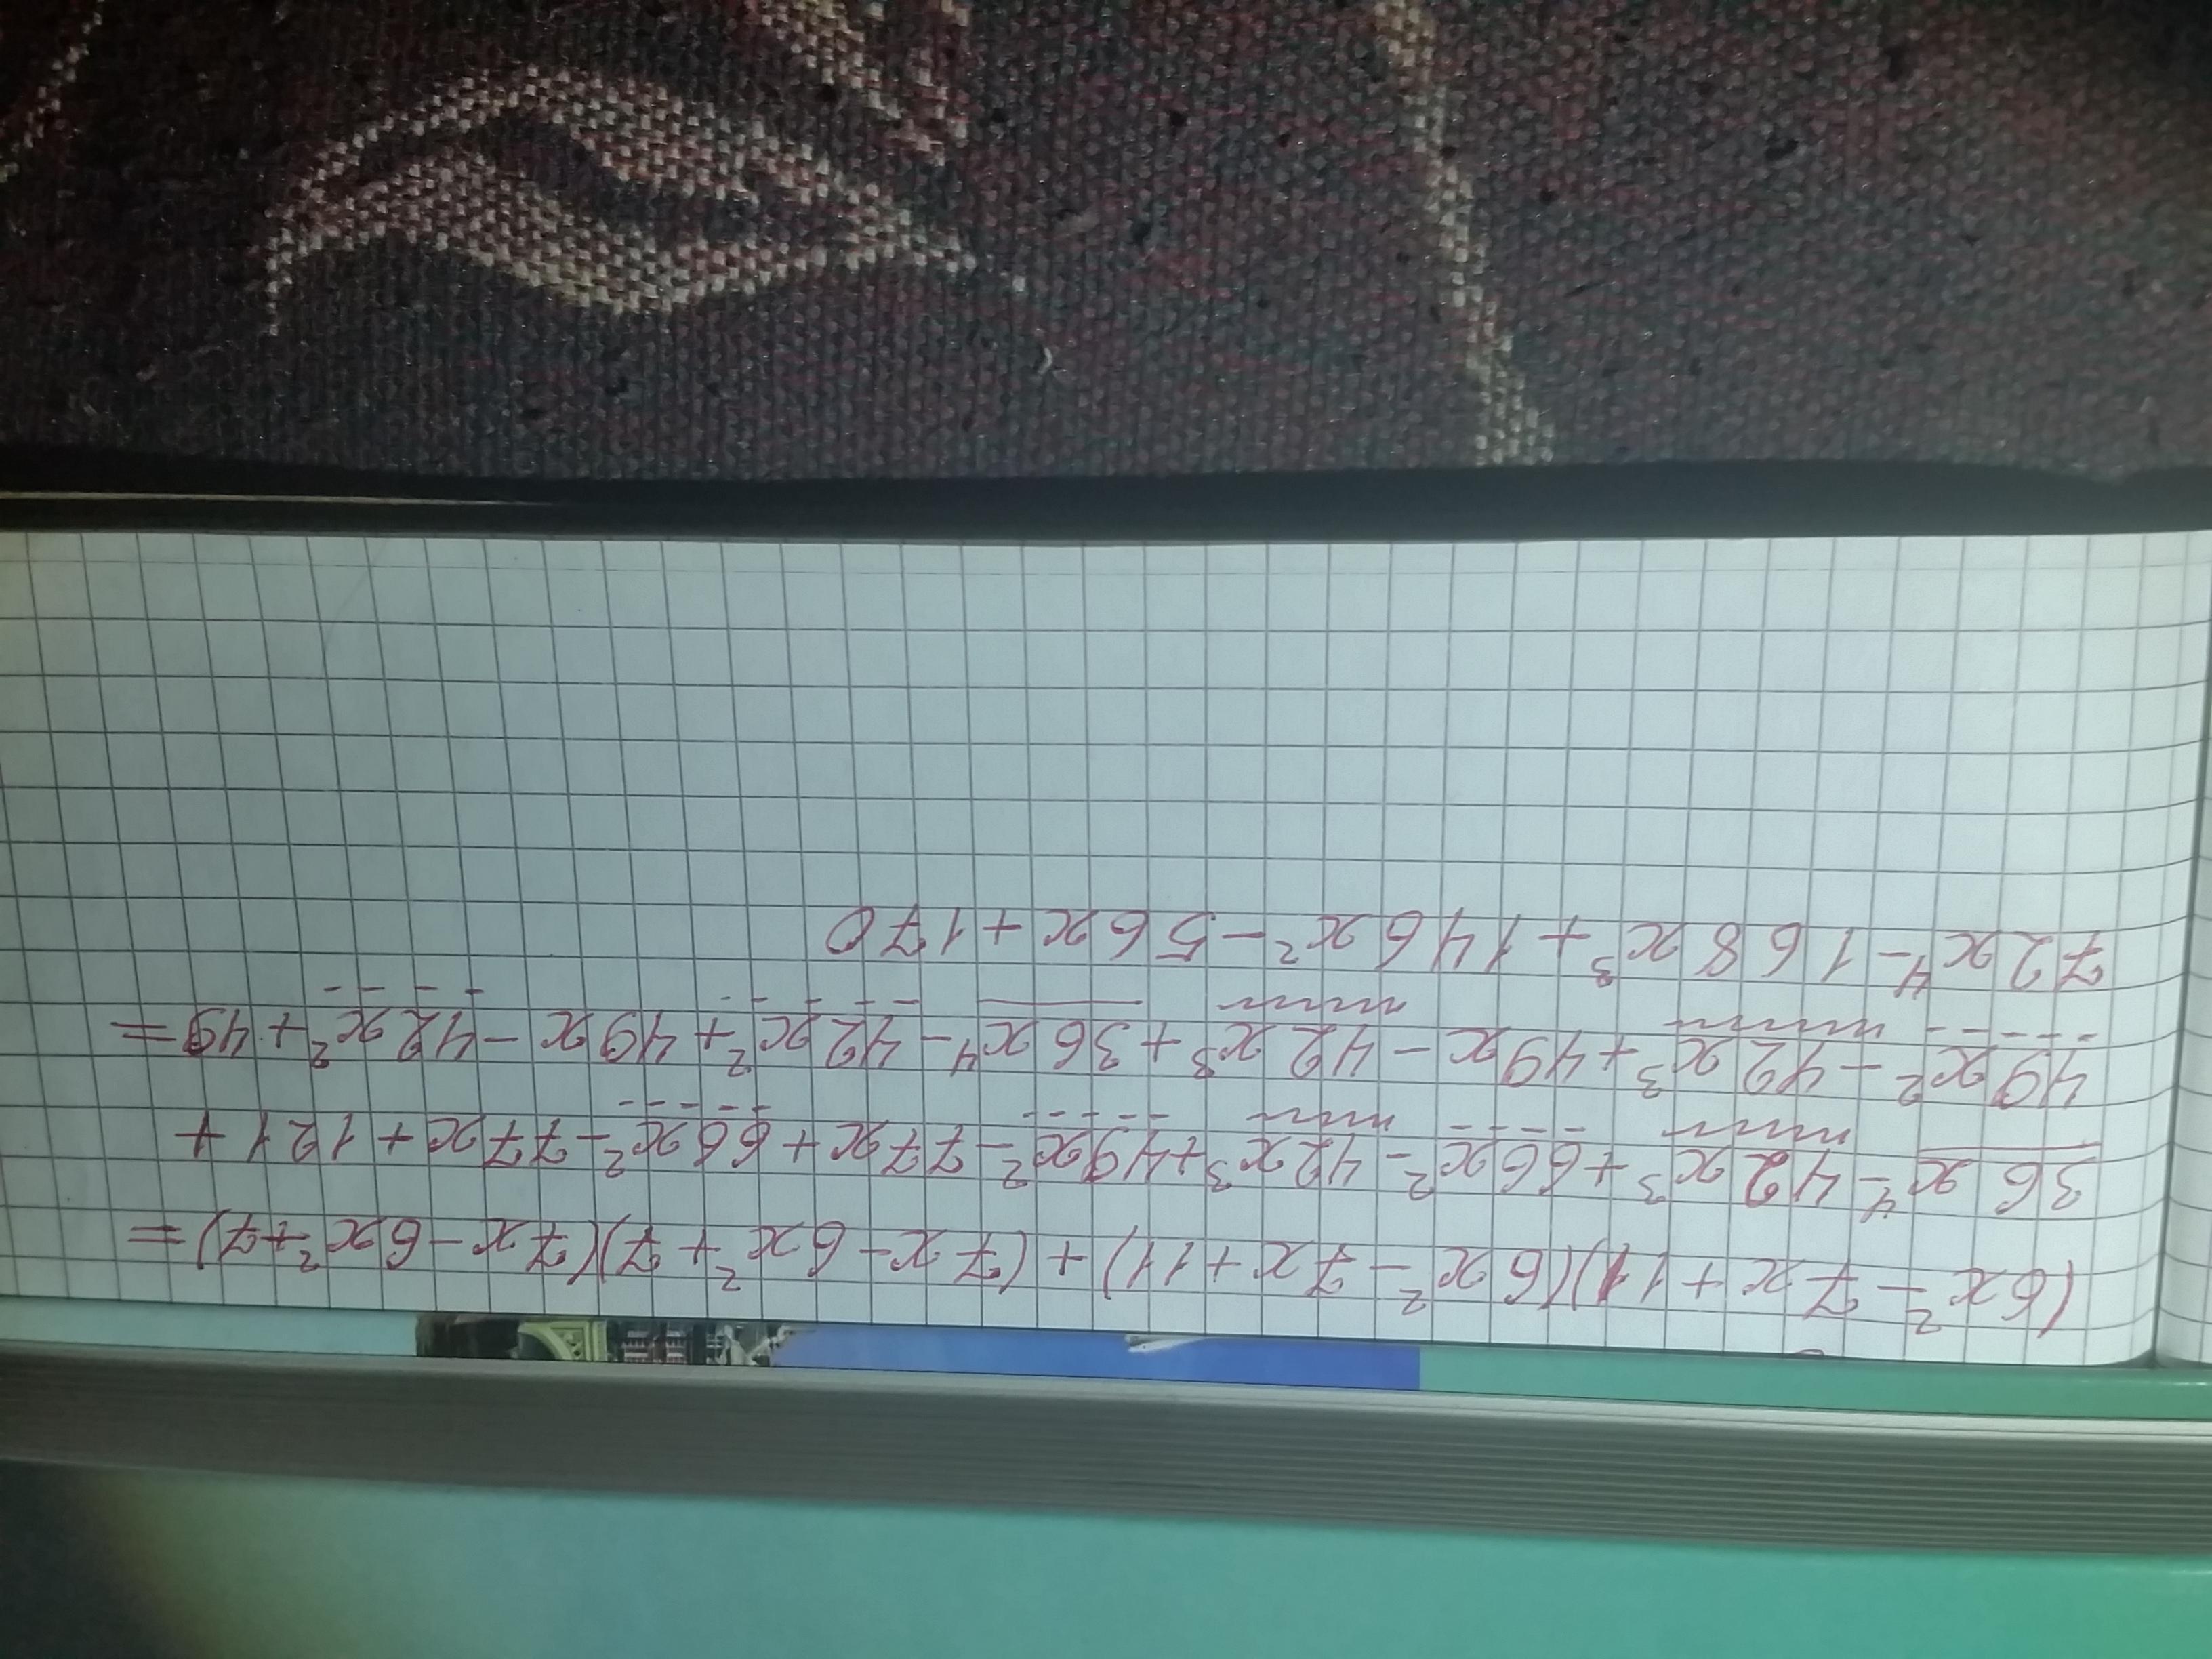 (6x² - 7x + 11)(6x² - 7x + 11) + (7x - 6x² + 7)(7x - 6x² + 7) =
36x⁴ - 42x³ + 66x² - 42x³ + 49x² - 77x + 66x² - 77x + 121 +
49x² - 42x³ + 49x - 42x³ + 36x⁴ - 42x² + 49x - 42x² + 49 =
72x⁴ - 168x³ + 146x² - 56x + 170